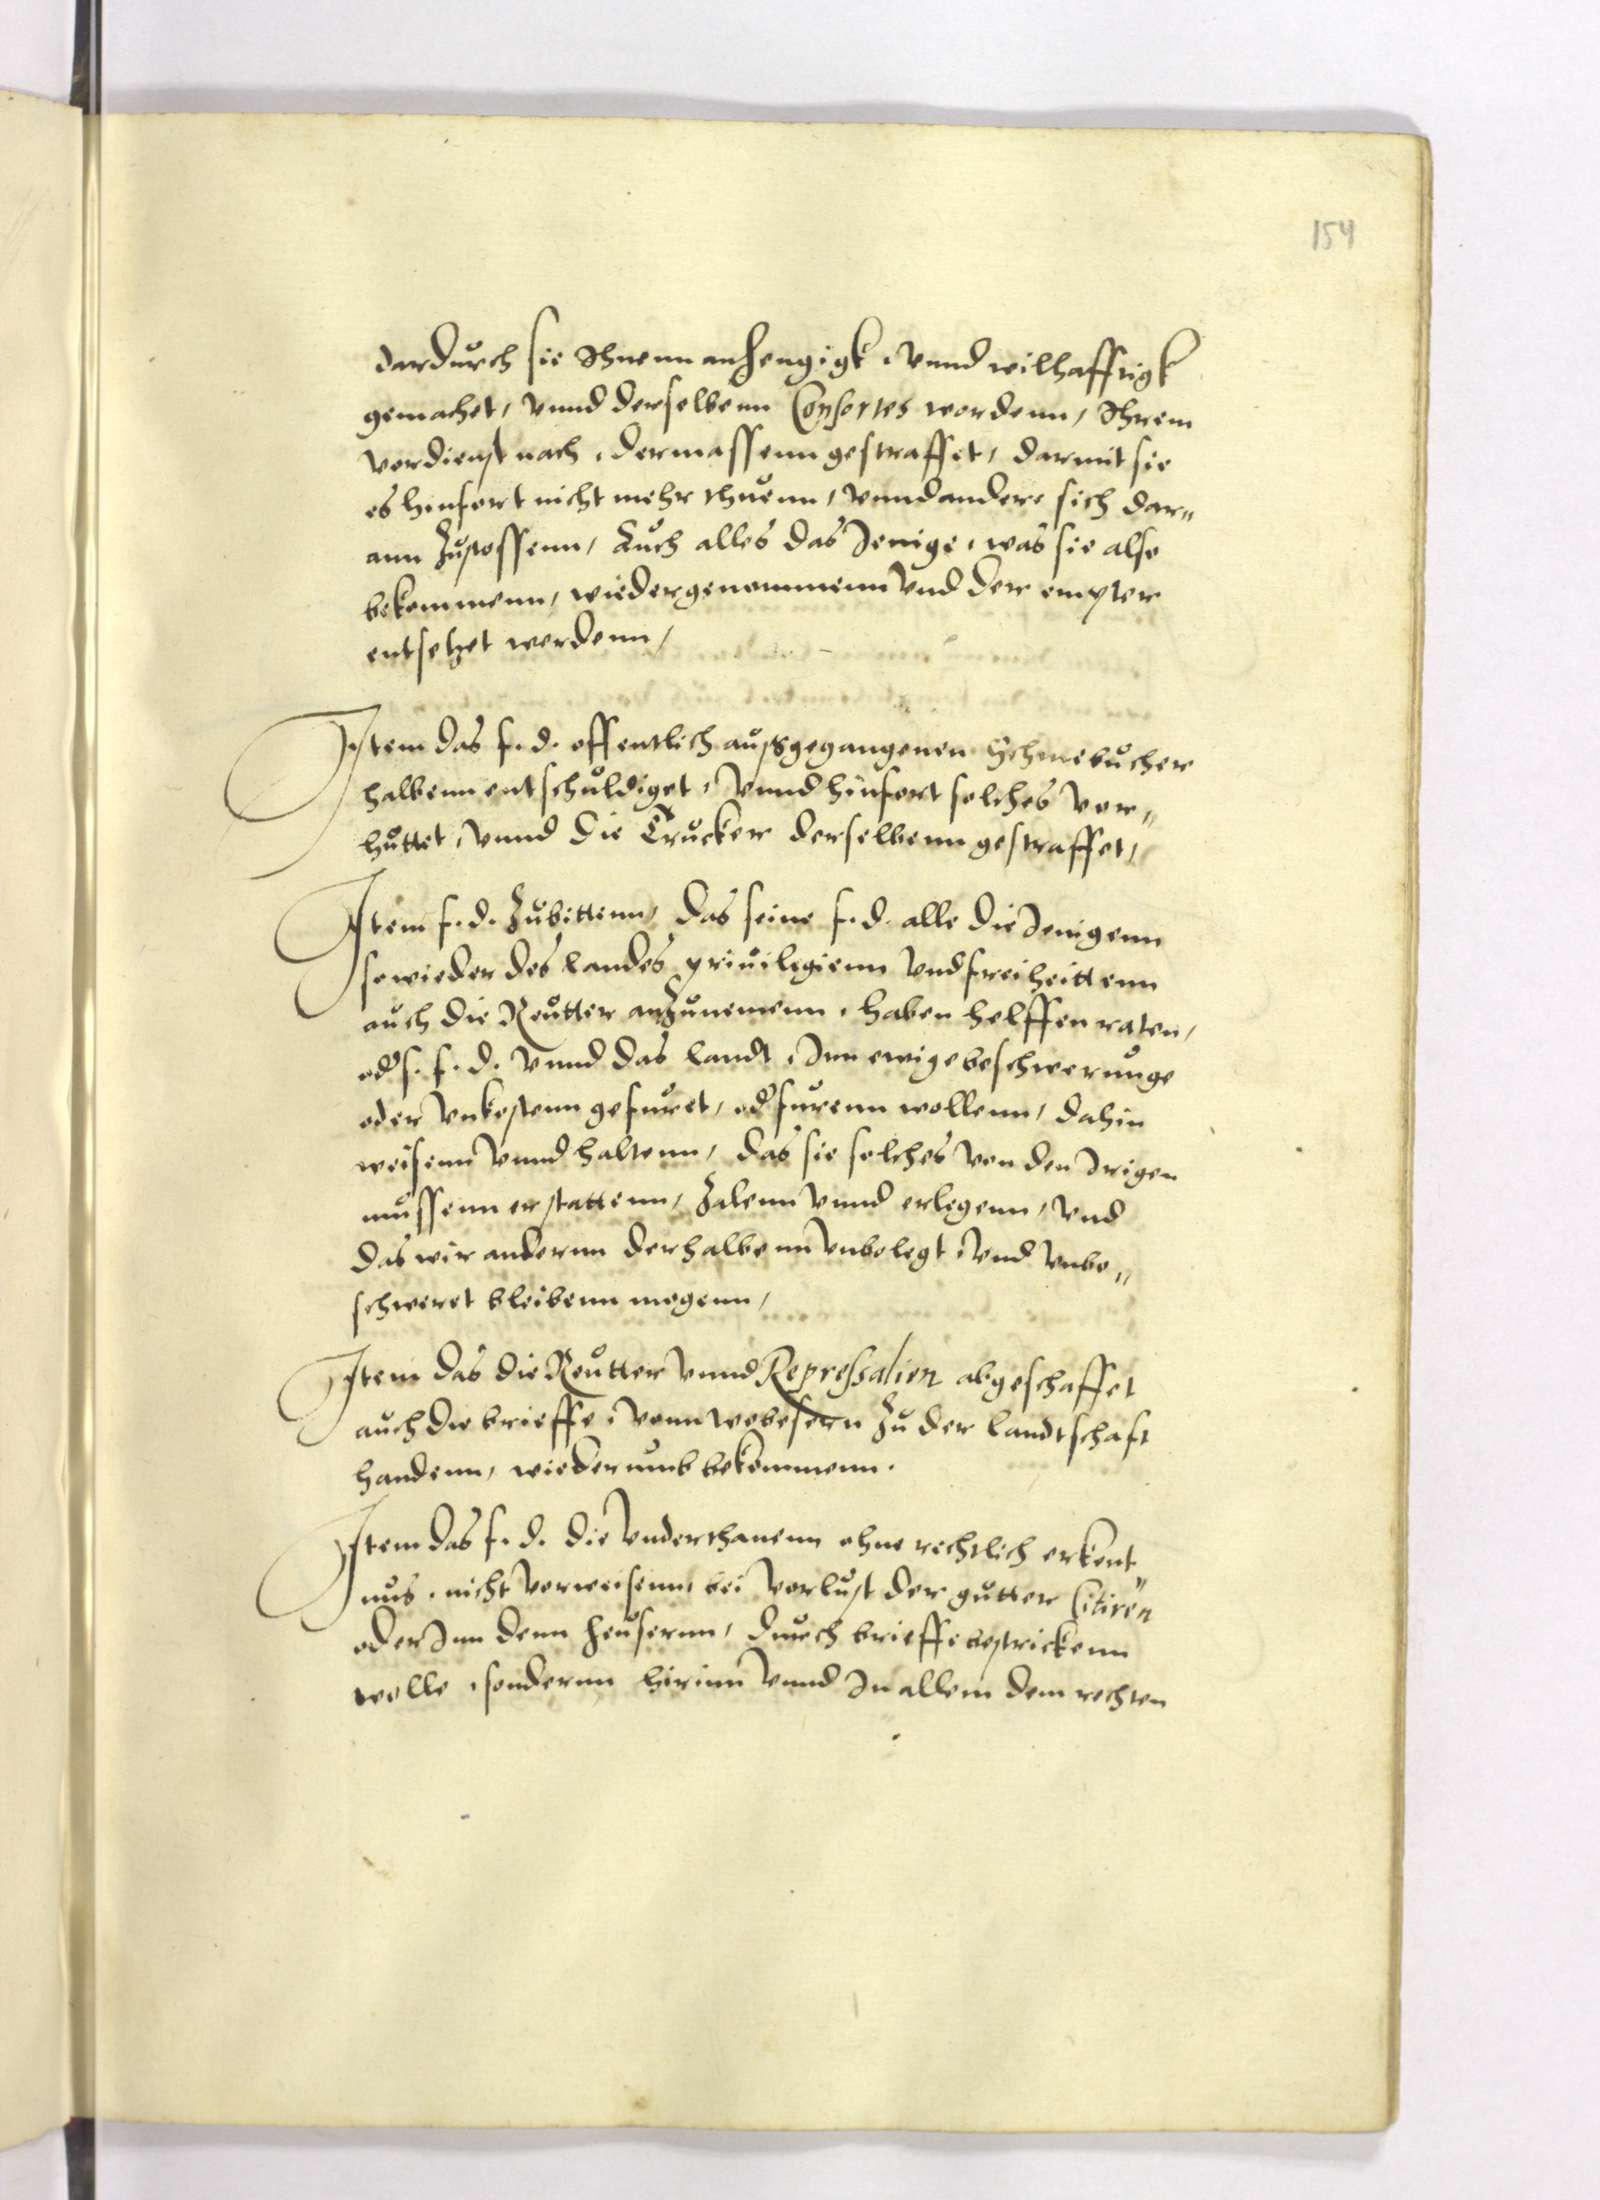 154
dardurch sie Ihnenn anhengigk, vnnd wilhafftigk
gemachet, vnnd derselbenn Consortes wordenn, Ihrem
verdienst nach, dermassenn gestraffet, darmit sie
es hinfort nicht mehr thuenn, vnnd andere sich dar„
ann zustossenn, Auch alles das Jenige, was sie also
bekommenn, wiedergenommenn vnd der empter
entsetzet werdenn,
Item das f. d. offentlich außgegangenen Schmebucher
halbenn entschuldiget, vnnd hinfort solches ver„
huttet, vnnd die Trucker derselbenn gestraffet,
Item f. d. zubittenn, das seine f. d. alle die Jenigenn
so wieder des landes priuilegienn vnd freiheittenn
auch die Reutter anzunemenn, haben helffen raten,
od s. f. d. vnnd das landt, Inn ewige beschwerunge
oder vnkostenn gefuret, od furenn wollenn, dahin
weisenn vnnd haltenn, das sie solches von den Irigen
mussenn erstattenn, zalenn vnnd erlegenn, vnd
das wir andernn derhalbenn vnbelegt, vnd vnbe„
schweret bleibenn mogenn,
Item das die Reutter vnnd Repressalien abgeschaffet
auch die brieffe, vonn wobesern zu der landtschaft
handenn, wiederumb bekommenn.
Item das f. d. die vnderthanenn ohne rechtlich erkent„
nus, nicht verweisenn, bei verlust der gutter Citiren
oder Inn denn heusernn, durch brieffe bestrickenn
wolle, sondernn hirinn vnnd In allem dem rechten